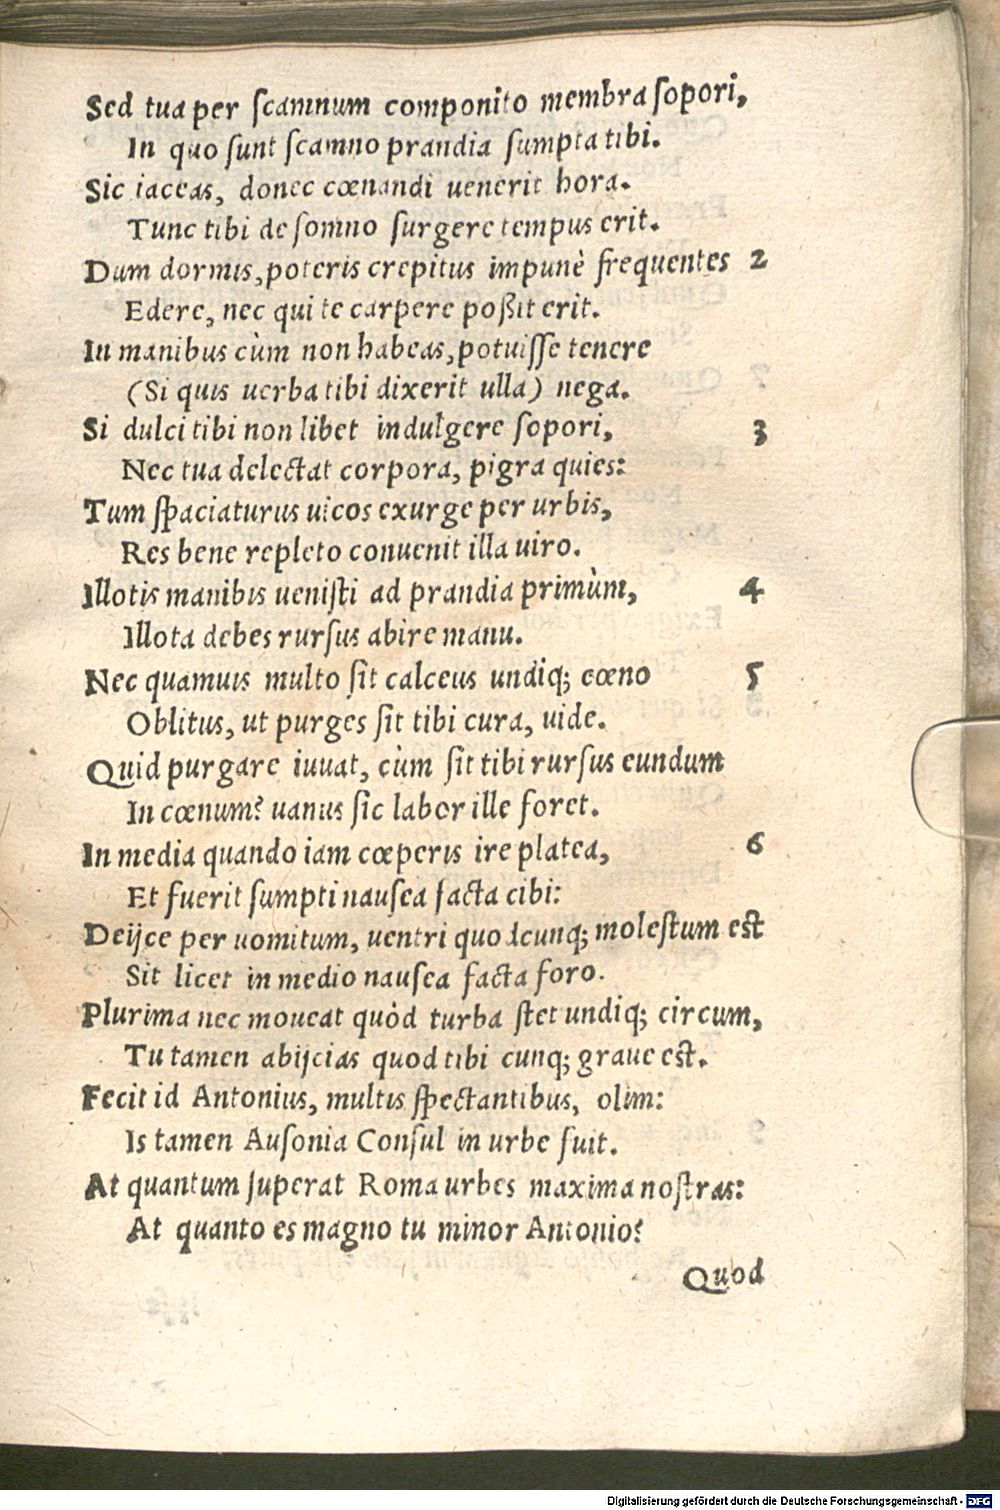 Sed tua per ſcamnum componito membra ſopori,
In quo ſunt ſcamno prandia ſumpta tibi.
Sic iaceas, donec cœnandi uenerit hora.
Tunc tibi de ſomno ſurgere tempus erit.
Dum dormis, poteris crepitus impunè frequentes 2
Edere, nec qui te carpere poßit erit.
In manibus cùm non habeas, potuiſſe tenere
(Si quis uerba tibi dixerit ulla) nega.
Si dulci tibi non libet indulgere ſopori, 3
Nec tua delectat corpora, pigra quies:
Tum ſpaciaturus uicos exurge per urbis,
Res bene repleto conuenit illa uiro.
Illotis manibis ueniſti ad prandia primùm, 4
Illota debes rurſus abire manu.
Nec quamuis multo ſit calceus undiq; cœno 5
Oblitus, ut purges ſit tibi cura, uide.
Quid purgare iuuat, cùm ſit tibi rurſus eundum
In cœnum? uanus ſic labor ille foret.
In media quando iam cœperis ire platea, 6
Et fuerit ſumpti nauſea facta cibi:
Deijce per uomitum, uentri quodcunq; moleſtum eſt
Sit licet in medio nauſea facta foro.
Plurima nec moueat quòd turba ſtet undiq; circum,
Tu tamen abijcias quod tibi cunq; graue eſt.
Fecit id Antonius, multis ſpectantibus, olim:
Is tamen Auſonia Conſul in urbe fuit.
At quantum ſuperat Roma urbes maxima noſtras:
At quanto es magno tu minor Antonio?
Quod
Digitalisierung gefördert durch die Deutsche Forschungsgemeinschaft - DFG